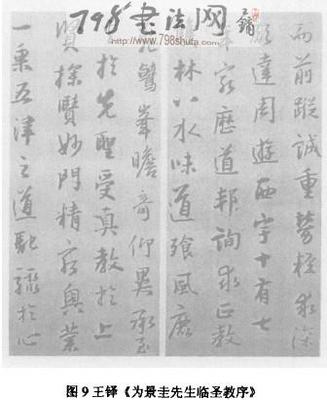 798书法网
www.798shufa.com
王鐸
而前蹤誠重勞輕求深
願達周遊西宇十有七
年窮歷道邦詢求正教
林八水味道飡風鹿
鷲峯瞻奇仰異承至
於先聖受真教於上
賢探賾妙門精窮奧業
一乘五津之道馳驟於心
图9 王铎《为景圭先生临圣教序》